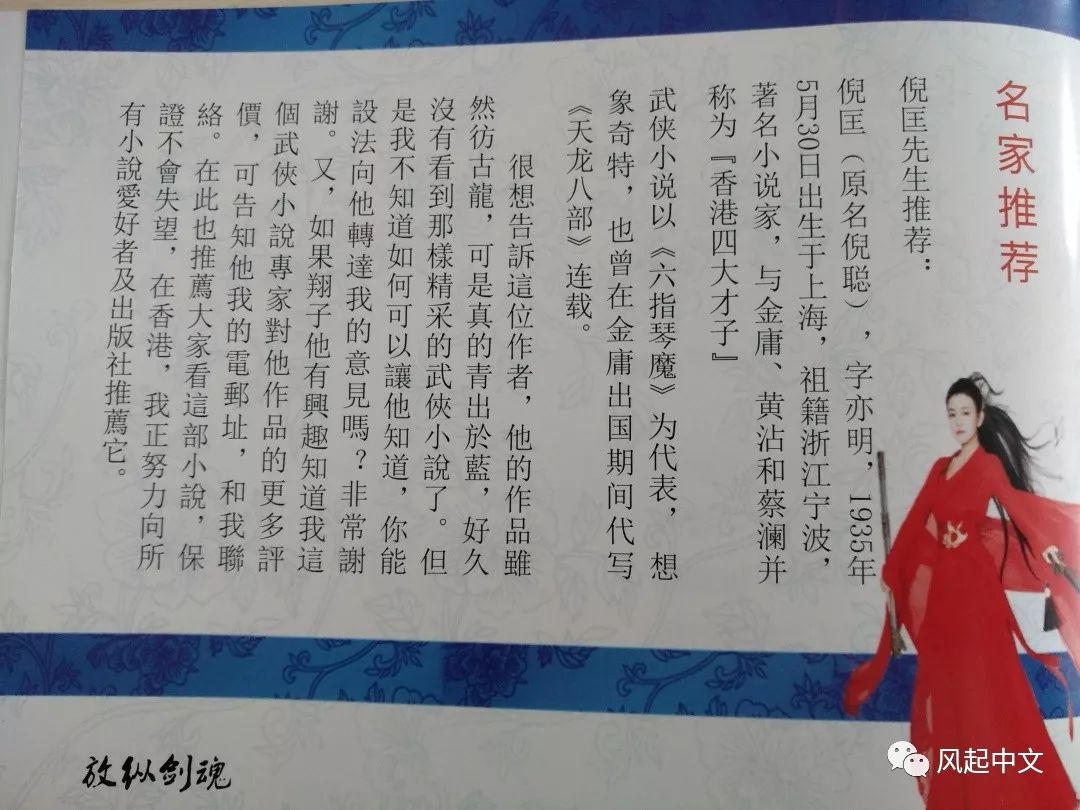 名家推荐
倪匡先生推荐：
倪匡（原名倪聪），字亦明，1935年
5月30日出生于上海，祖籍浙江宁波，
著名小说家，与金庸、黄沾和蔡澜并
称为『香港四大才子』
武侠小说以《六指琴魔》为代表，想
象奇特，也曾在金庸出国期间代写
《天龙八部》连载。
很想告訴這位作者，他的作品雖
然彷古龍，可是真的青出於藍，好久
沒有看到那樣精采的武俠小說了。但
是我不知道如何可以讓他知道，你能
設法向他轉達我的意見嗎？非常謝
謝。又，如果翔子他有興趣知道我這
個武俠小說專家對他作品的更多評
價，可告知他我的電郵址，和我聯
絡。在此也推薦大家看這部小說，保
證不會失望，在香港，我正努力向所
有小說愛好者及出版社推薦它。
放纵剑魂
风起中文